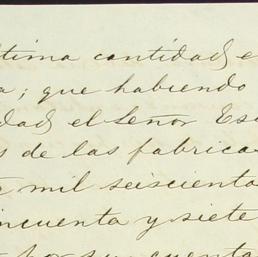 ltima cantidad e
a; que habiendo
dad el Señor Es
s de las fabrica
mil seiscienta
incuenta y siete
por su cuenta